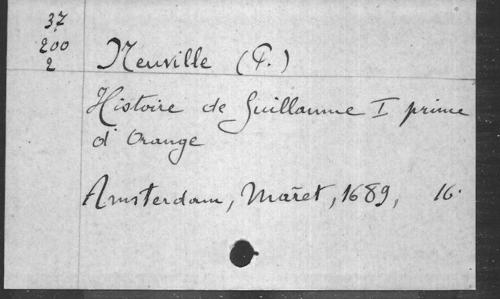 37
200
2
Neuville (P.)
Histoire de Guillaume I prince
d'Orange
Amsterdam, Maret, 1689, 16.